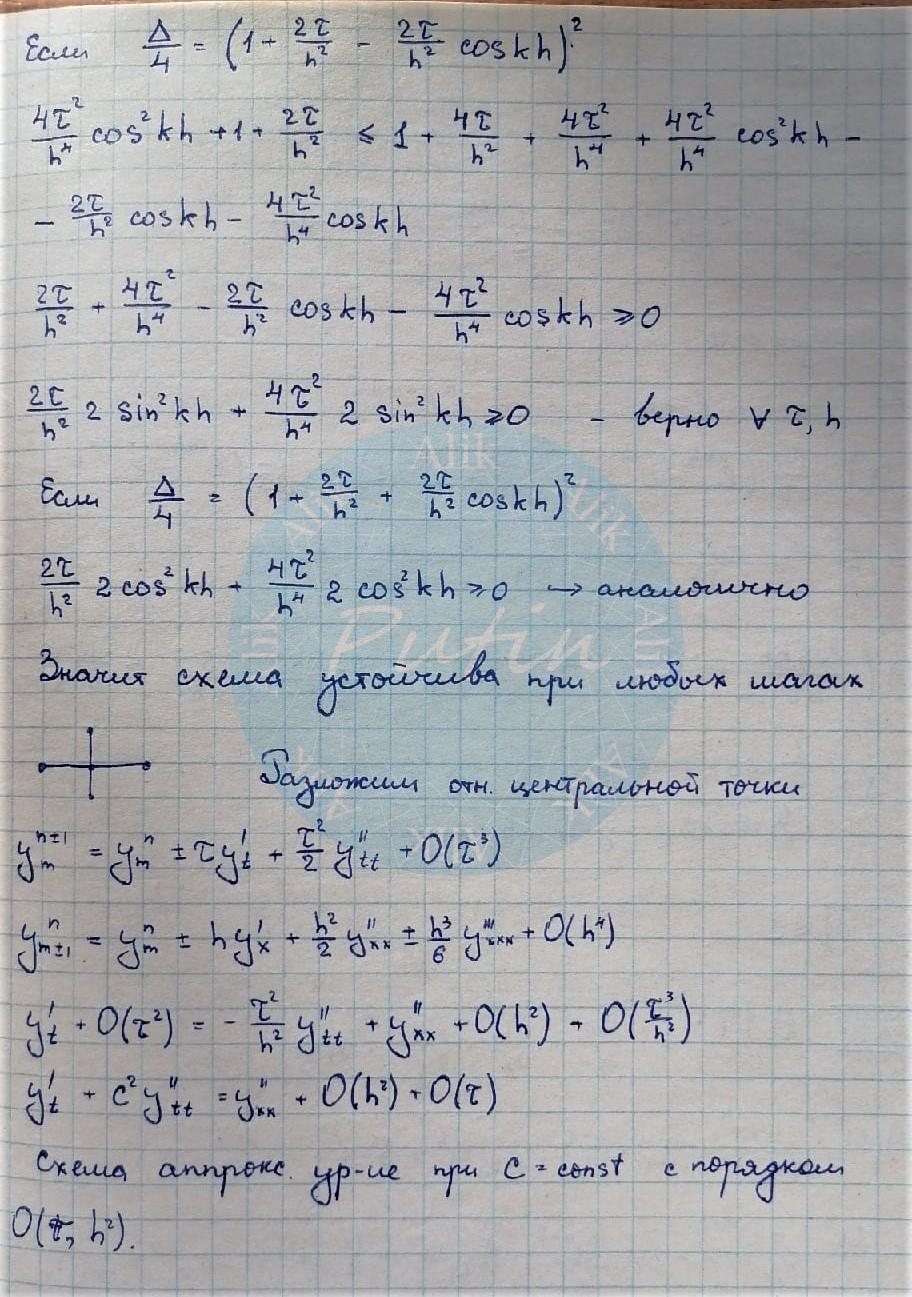 Если Δ/4 = (1 + 2τ/h² - 2τ/h² cos kh)².
4τ²/h⁴ cos² kh + 1 + 2τ/h² ≤ 1 + 4τ/h² + 4τ²/h⁴ + 4τ²/h⁴ cos² kh -
- 2τ/h² cos kh - 4τ²/h⁴ cos kh
2τ/h² + 4τ²/h⁴ - 2τ/h² cos kh - 4τ²/h⁴ cos kh ≥ 0
2τ/h² 2 sin² kh + 4τ²/h⁴ 2 sin² kh ≥ 0 - верно ∀ τ, h
Если Δ/4 = (1 + 2τ/h² + 2τ/h² cos kh)²
2τ/h² 2 cos² kh + 4τ²/h⁴ 2 cos² kh ≥ 0 → аналогично
Значит схема устойчива при любых шагах
Разложим отн. центральной точки
yₘⁿ±¹ = yₘⁿ ± τy'ₜ + τ²/2 y''ₜₜ + O(τ³)
yⁿₘ±₁ = yₘⁿ ± hy'ₓ + h²/2 y''ₓₓ ± h³/6 y'''ₓₓₓ + O(h⁴)
y'ₜ + O(τ²) = - τ²/h² y''ₜₜ + y''ₓₓ + O(h²) + O(τ³/h²)
y'ₜ + c² y''ₜₜ = y''ₓₓ + O(h²) + O(τ)
Схема аппрокс. ур-ие при c = const с порядком
O(τ, h²).
Alik
Putin